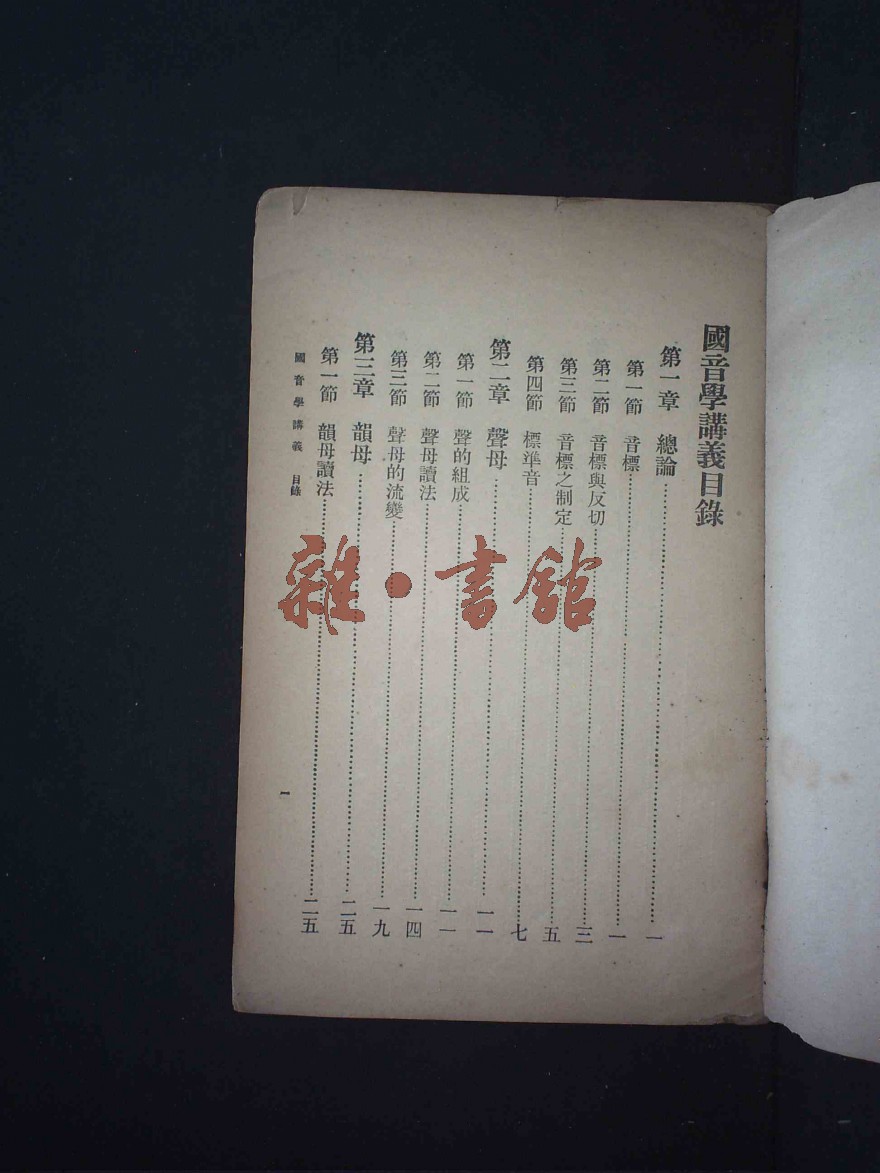 國音學講義目錄
第一章 總論……一
第一節 音標……一
第二節 音標與反切……三
第三節 音標之制定……五
第四節 標準音……七
第二章 聲母……一一
第一節 聲的組成……一一
第二節 聲母讀法……一四
第三節 聲母的流變……一九
第三章 韻母……二五
第一節 韻母讀法……二五
國音學講義 目錄
一
雜·書館